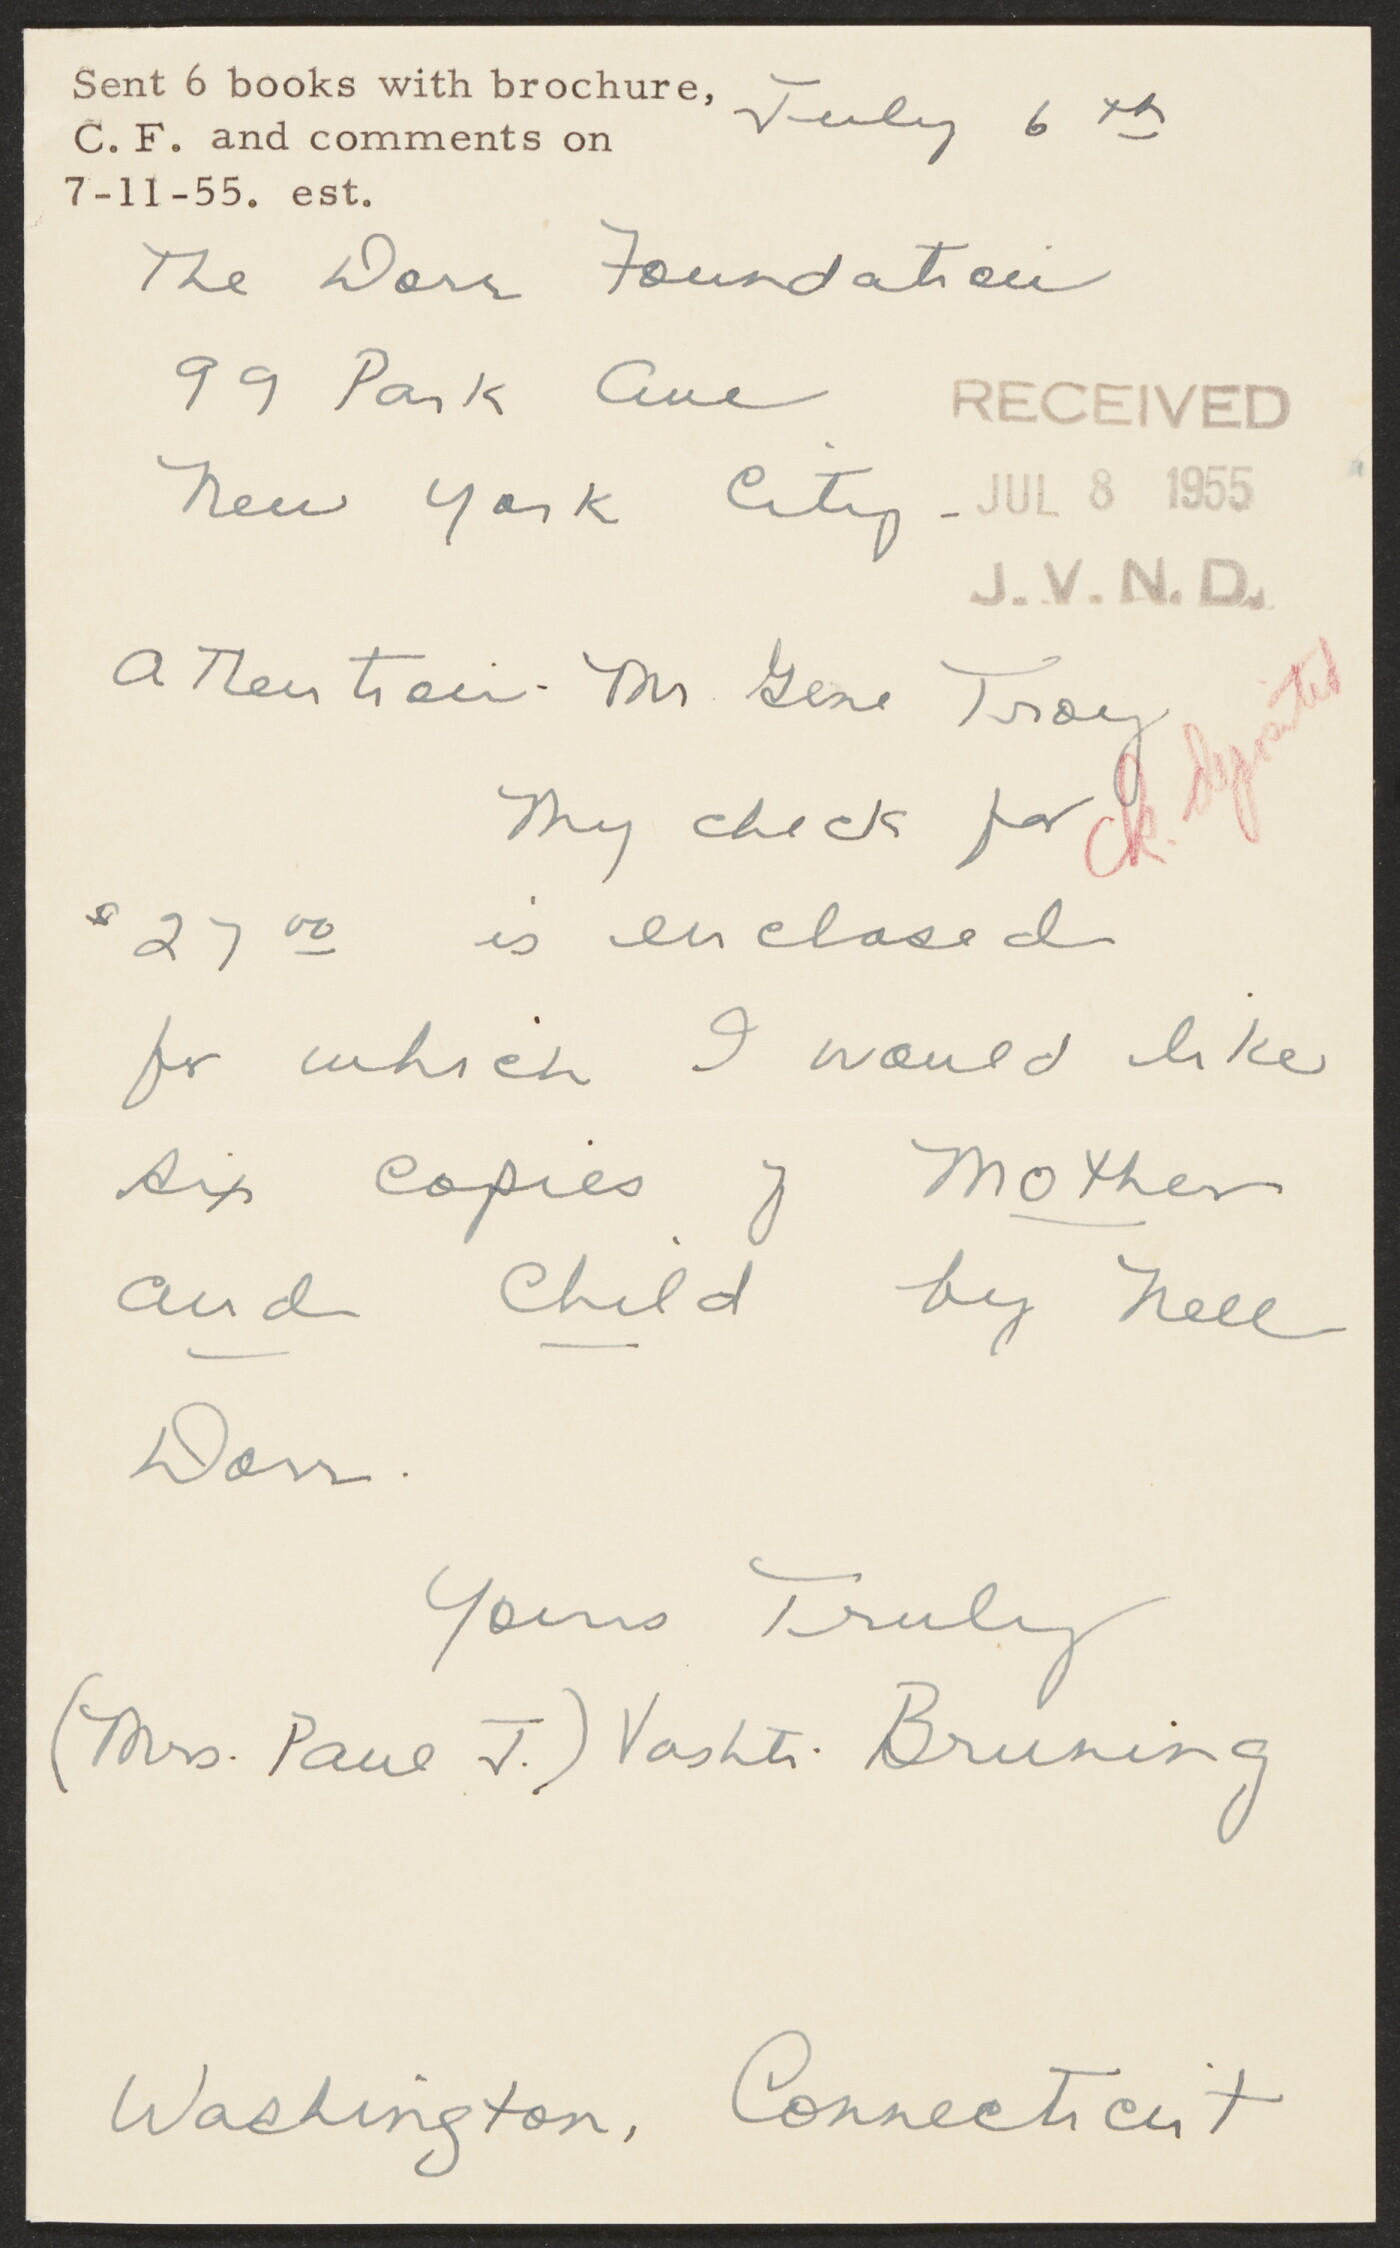 Sent 6 books with brochure,
C. F. and comments on
7-11-55. est.
July 6th
The Dorr Foundation
99 Park Ave
New York City -
RECEIVED
JUL 8 1955
J. V. N. D.
Attention - Mr Gene Troy
Ck. deposited
My check for
$27.00 is enclosed
for which I would like
six copies of Mother
and Child by Nell
Dorr.
Yours Truly
(Mrs. Paul J.) Vashti Bruning
Washington, Connecticut